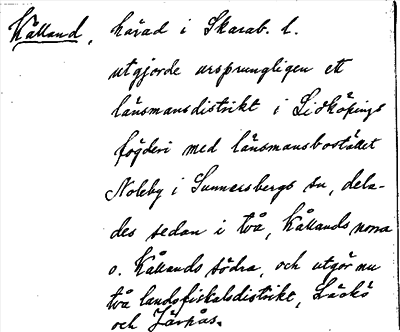 Kålland, härad i Skarab. l.
utgjorde ursprungligen ett
länsmansdistrikt i Lidköpings
fögderi med länsmansbostället
Noleby i Sunnersbergs sn, dela-
des sedan i två, Kållands norra
o. Kållands södra, och utgör nu
två landsfiskalsdistrikt, Läckö
och Järpås.